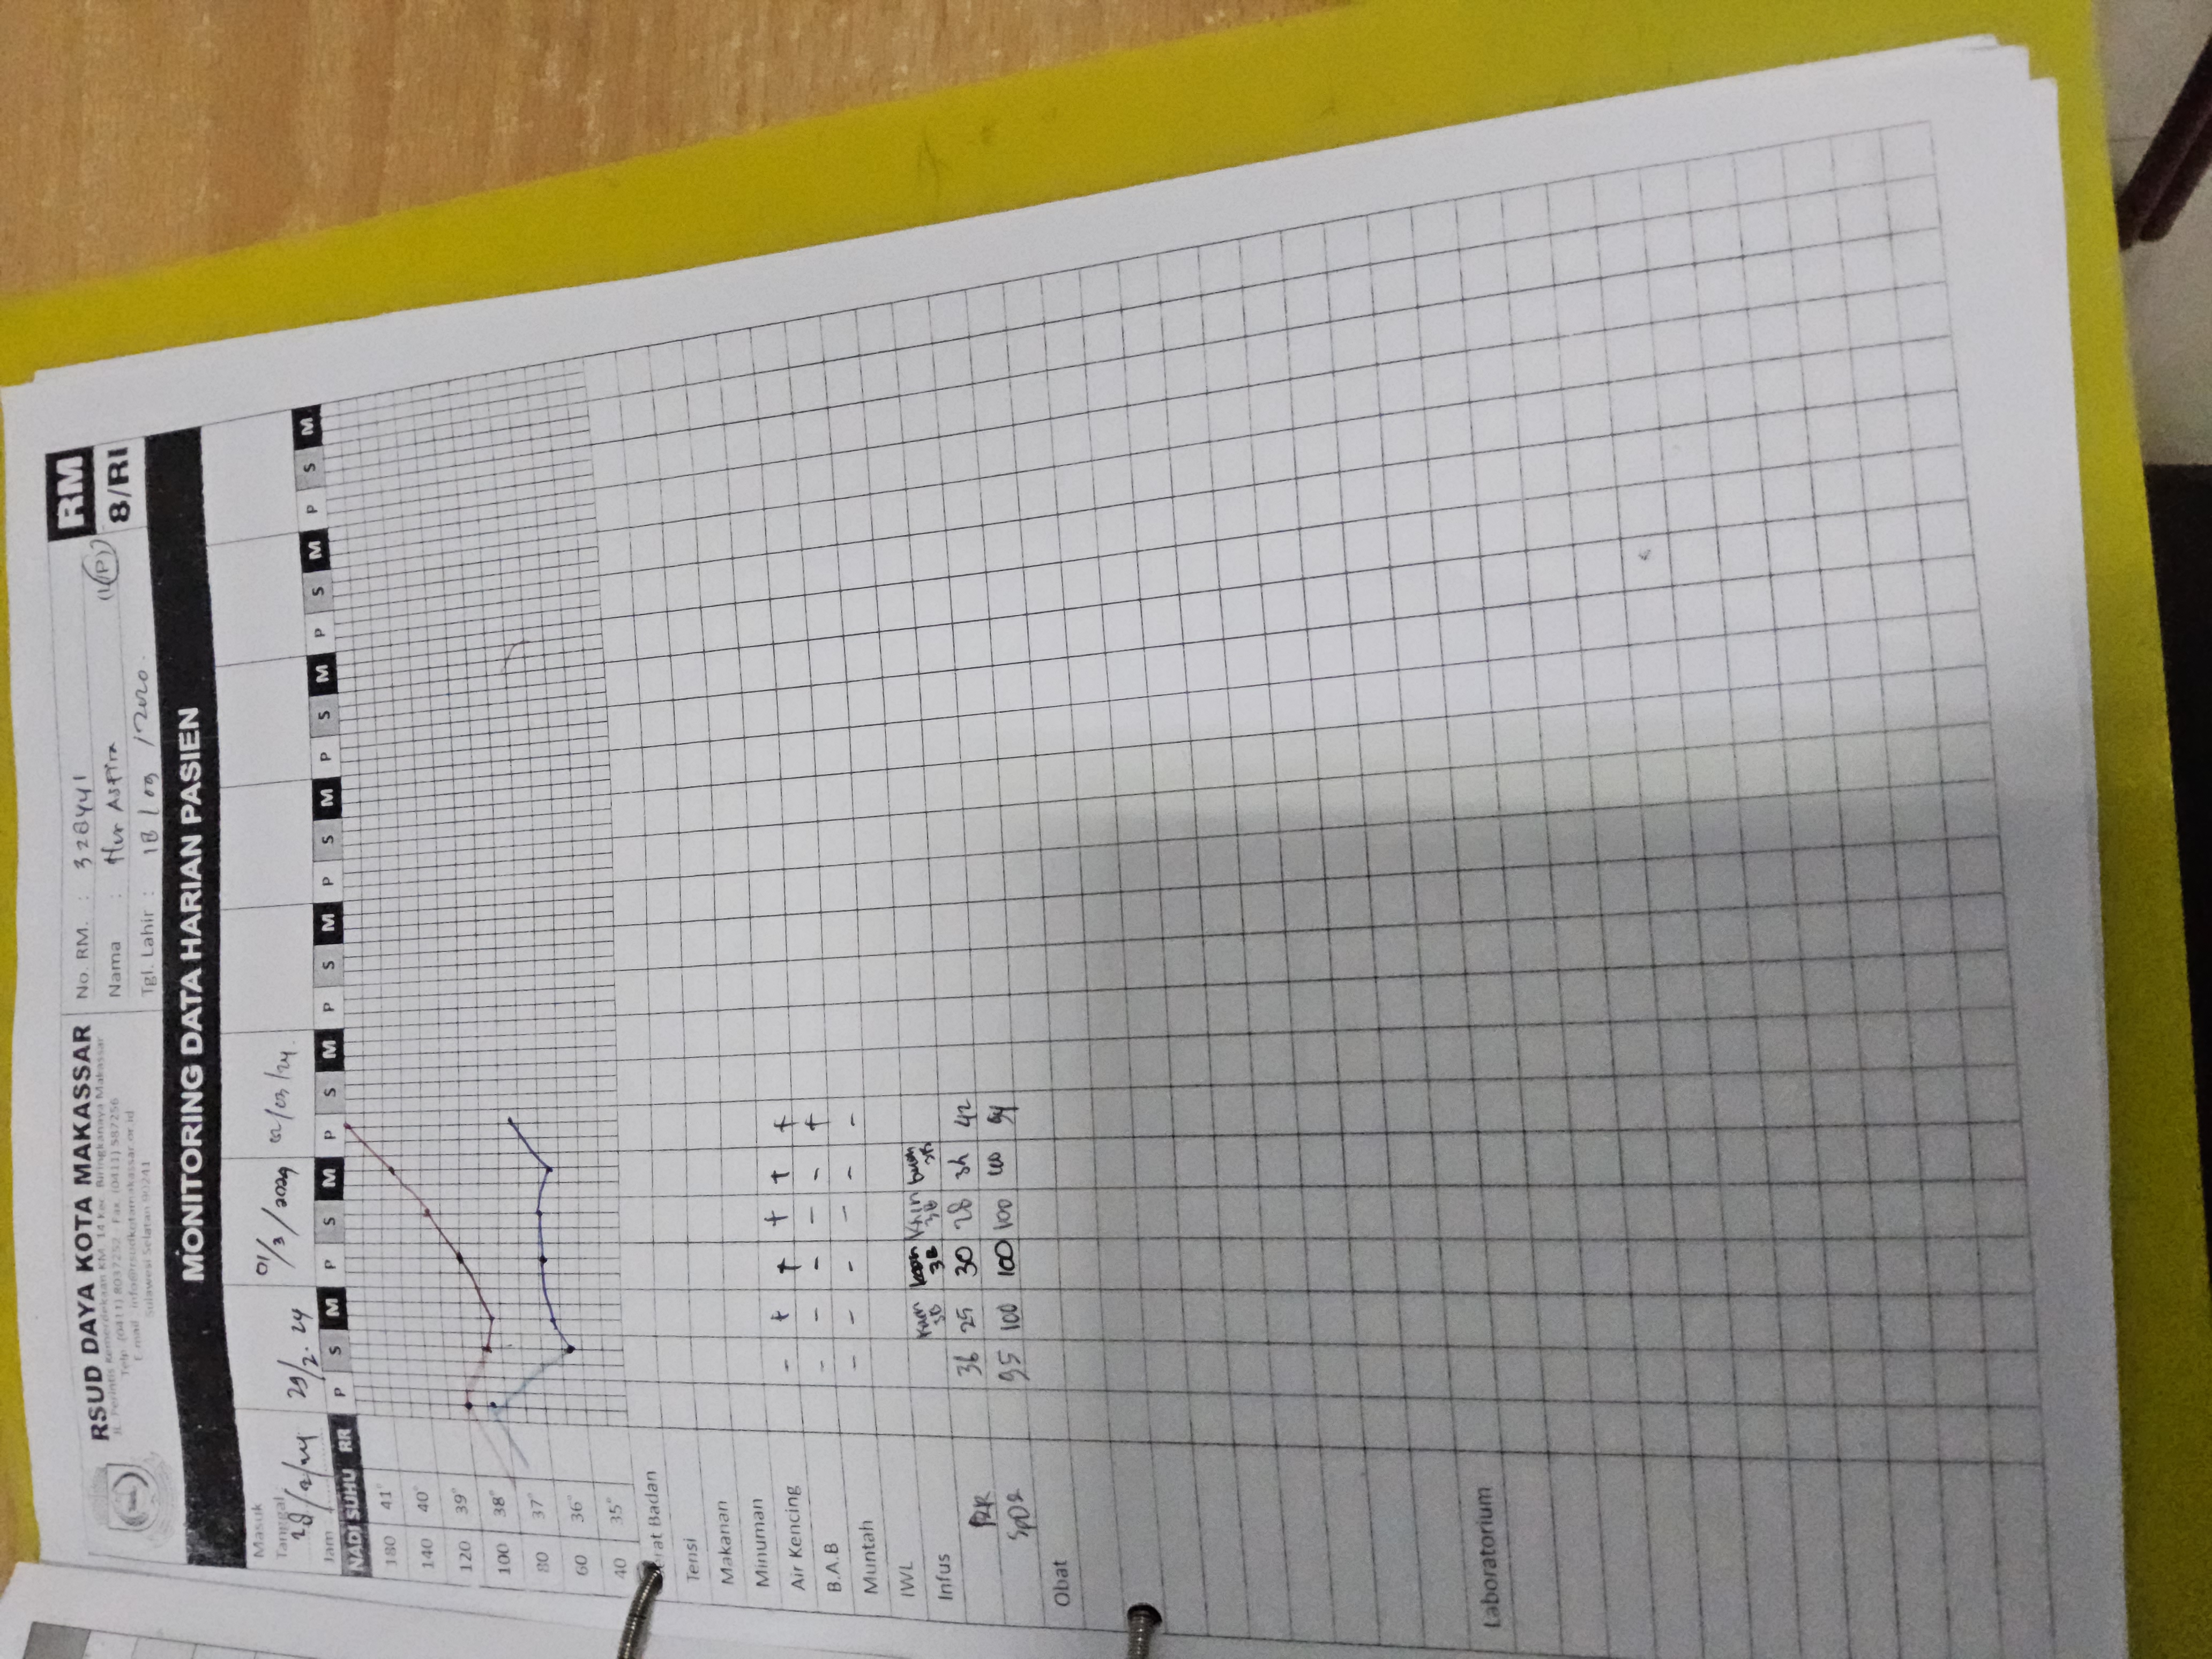 RSUD DAYA KOTA MAKASSAR
JL. Perintis Kemerdekaan KM. 14 Kec. Biringkanaya Makassar
Telp. (0411) 8037252 - Fax. (0411) 587256
E.mail : info@rsudkotamakassar.or.id
Sulawesi Selatan 90241
No. RM. : 328441
Nama : Nur Asfira (L/P)
Tgl. Lahir : 18 / 09 / 2020
RM
8/RI
MONITORING DATA HARIAN PASIEN
Masuk
Tanggal : 28/2/24 29/2.24 01/3/2024 02/03/24
Jam :
NADI SUHU RR P S M P S M P S M P S M P S M P S M P S M P S M
180 41°
140 40°
120 39°
100 38°
80 37°
60 36°
40 35°
erat Badan
Tensi
Makanan
Minuman
Air Kencing - + + + + +
B.A.B - - - - - +
Muntah - - - - - -
IWL
Infus 3B 3B 3B 3B
RR 36 25 30 28 34 42
SpO2 95 100 100 100 100 94
Obat
Laboratorium